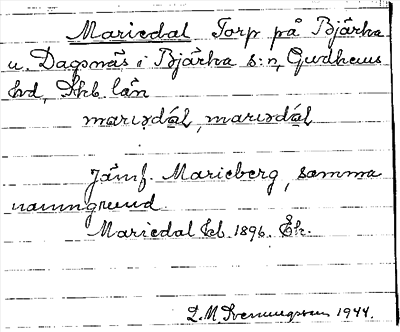 Mariedal Torp på Bjärka
u. Dagsnäs i Bjärka s:n, Gudhems
hd, Skb. län
marɩədál, marɩədál
Jämf. Marieberg, samma
namngrund.
Mariedal Lb. 1896. Ek.
L. M. Svenungsson 1944.